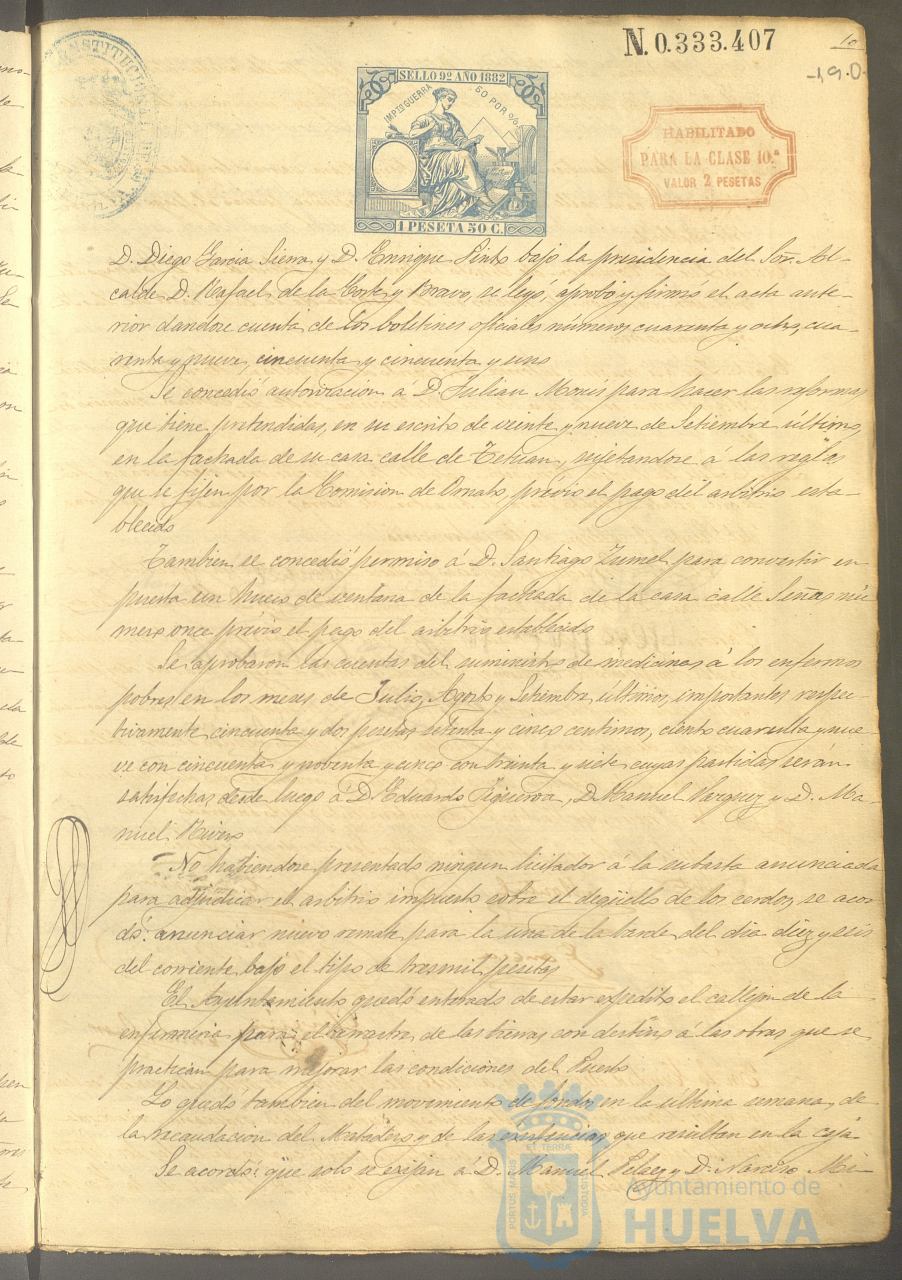 N. 0.333.407
10
190
CONSTITUCIONAL DE
HUELVA
SELLO 9º AÑO 1882
IMPTO GUERRA 50 POR %
1 PESETA 50 C.
HABILITADO
PARA LA CLASE 10.ª
VALOR 2 PESETAS
D. Diego Garcia Sierra y D. Enrique Pinto bajo la presidencia del Sor. Al-
calde D. Rafael de la Corte y Bravo, se leyó, aprobó y firmó el acta ante-
rior dandose cuenta de los boletines oficiales números cuarenta y ocho, cua-
renta y nueve, cincuenta y cincuenta y uno
Se concedió autorizacion á D. Julian Monís para hacer las reformas
que tiene pretendidas, en su escrito de veinte y nueve de Setiembre último,
en la fachada de su casa calle de Tetuan, sujetandose á las reglas
que le fijen por la Comision de Ornato, previo el pago del arbitrio esta-
blecido
Tambien se concedió permiso á D. Santiago Zumel para convertir en
puerta un hueco de ventana de la fachada de la casa calle Señas nú
mero once previo el pago del arbitrio establecido
Se aprobaron las cuentas del suministro de medicinas á los enfermos
pobres en los meses de Julio, Agosto y Setiembre, últimos, importantes respec-
tivamente cincuenta y dos pesetas setenta y cinco centimos, ciento cuarenta y nue-
ve con cincuenta y noventa y cinco con treinta y siete cuyas partidas serán
satisfechas desde luego á D. Eduardo Figueroa, D. Manuel Vazquez y D. Ma-
nuel Rivero
No habiendose presentado ningun licitador á la subasta anunciada
para adjudicar el arbitrio impuesto sobre el degüello de los cerdos, se acor
dó: anunciar nuevo remate para la una de la tarde del dia diez y seis
del corriente bajo el tipo de tres mil pesetas
El Ayuntamiento quedó enterado de estar expedito el callejon de la
enfermeria para el arrastre de las tierras con destino á las obras que se
practican para mejorar las condiciones del Puerto
Lo quedó tambien del movimiento de fondos en la última semana, de
la recaudacion del Matadero y de las existencias que resultan en la caja
Se acordó: que solo se exijan á D. Manuel Pelaez y D. Narciso Mi-
PORTUS MARIS ET TERRAE CUSTODIA
Ayuntamiento de
HUELVA